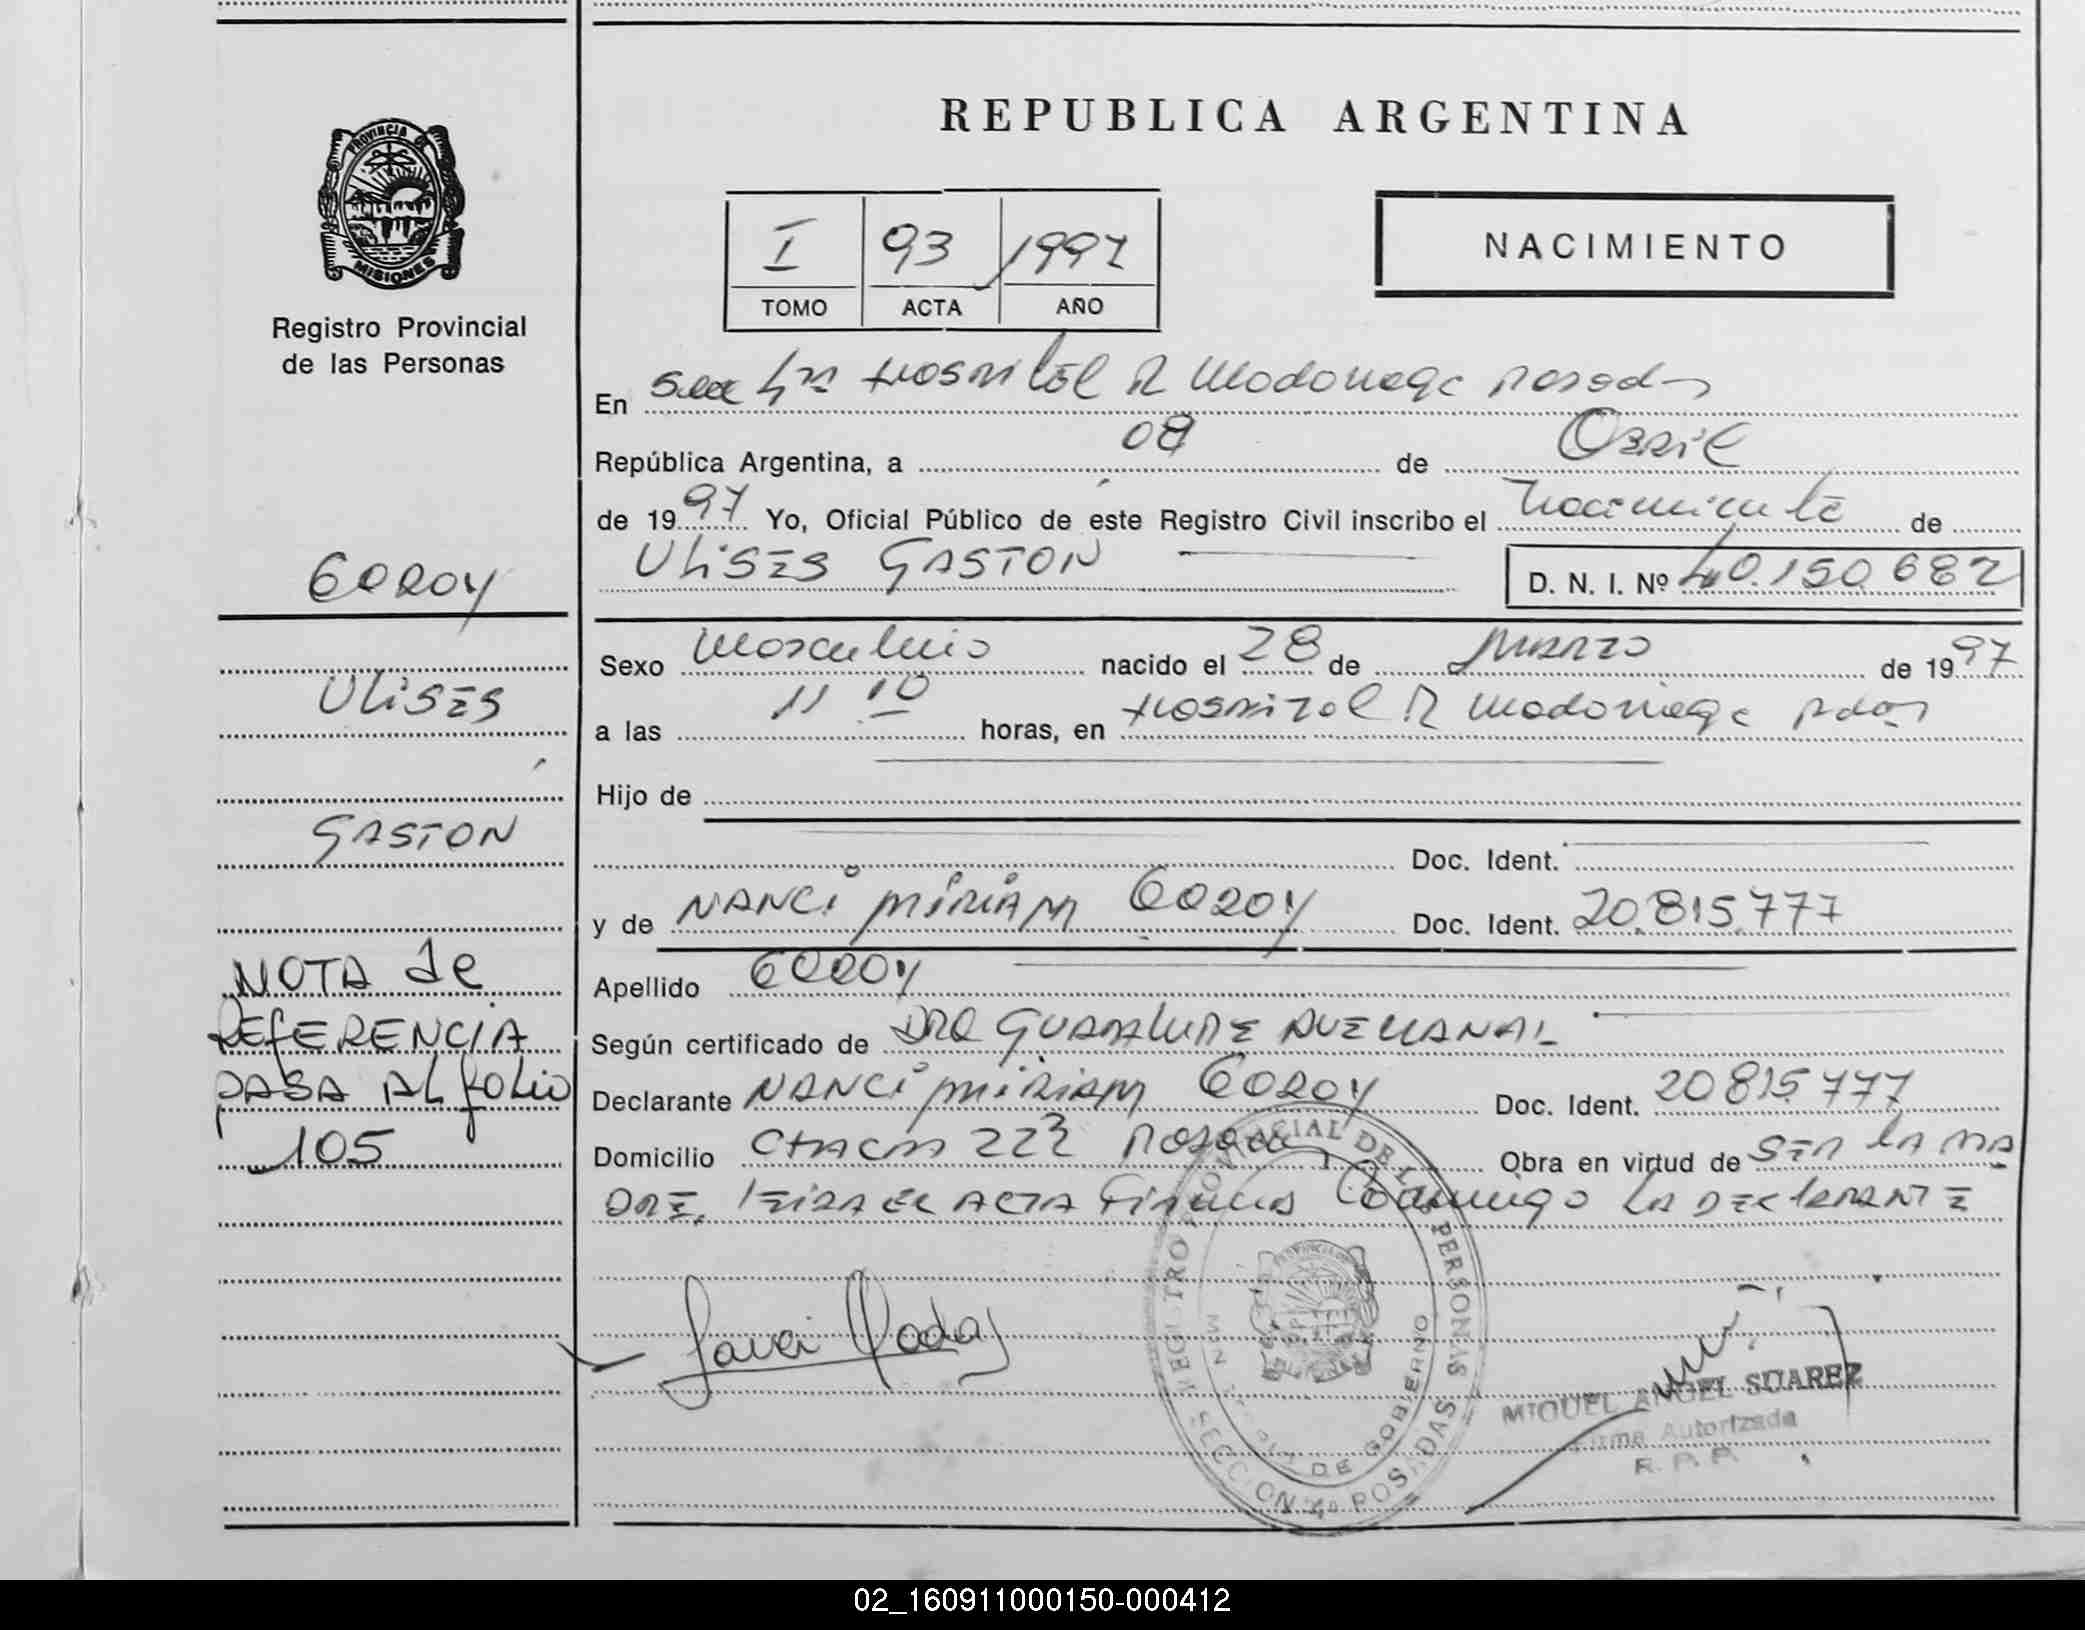 REPUBLICA ARGENTINA
PROVINCIA DE
MISIONES
Registro Provincial
de las Personas
I 93 1997
TOMO ACTA AÑO
NACIMIENTO
En Hospital R Madariaga Posadas
República Argentina, a 08 de Abril
de 1997 Yo, Oficial Público de este Registro Civil inscribo el Nacimiento de
ULISES GASTON D. N. I. Nº 40.150.682
GODOY
Sexo Masculino nacido el 28 de Marzo de 1997
ULISES
a las 11 10 horas, en Hospital R Madariaga Pdas
Hijo de
GASTON
Doc. Ident.
y de NANCI MIRIAM GODOY Doc. Ident. 20.815.777
NOTA de
REFERENCIA
PASA AL folio
105
Apellido GODOY
Según certificado de DRA GUADALUPE AVELLANAL
Declarante NANCI MIRIAM GODOY Doc. Ident. 20815777
Domicilio CHACO 222 Posadas Obra en virtud de SER LA MA
DRE. LEIDA EL ACTA FIRMA Conmigo LA DECLARANTE
REGISTRO PROVINCIAL DE LAS PERSONAS
DE GOBIERNO
SECCION 4ª POSADAS
MIGUEL ANGEL SUAREZ
Firma Autorizada
R. P. P.
02_160911000150-000412